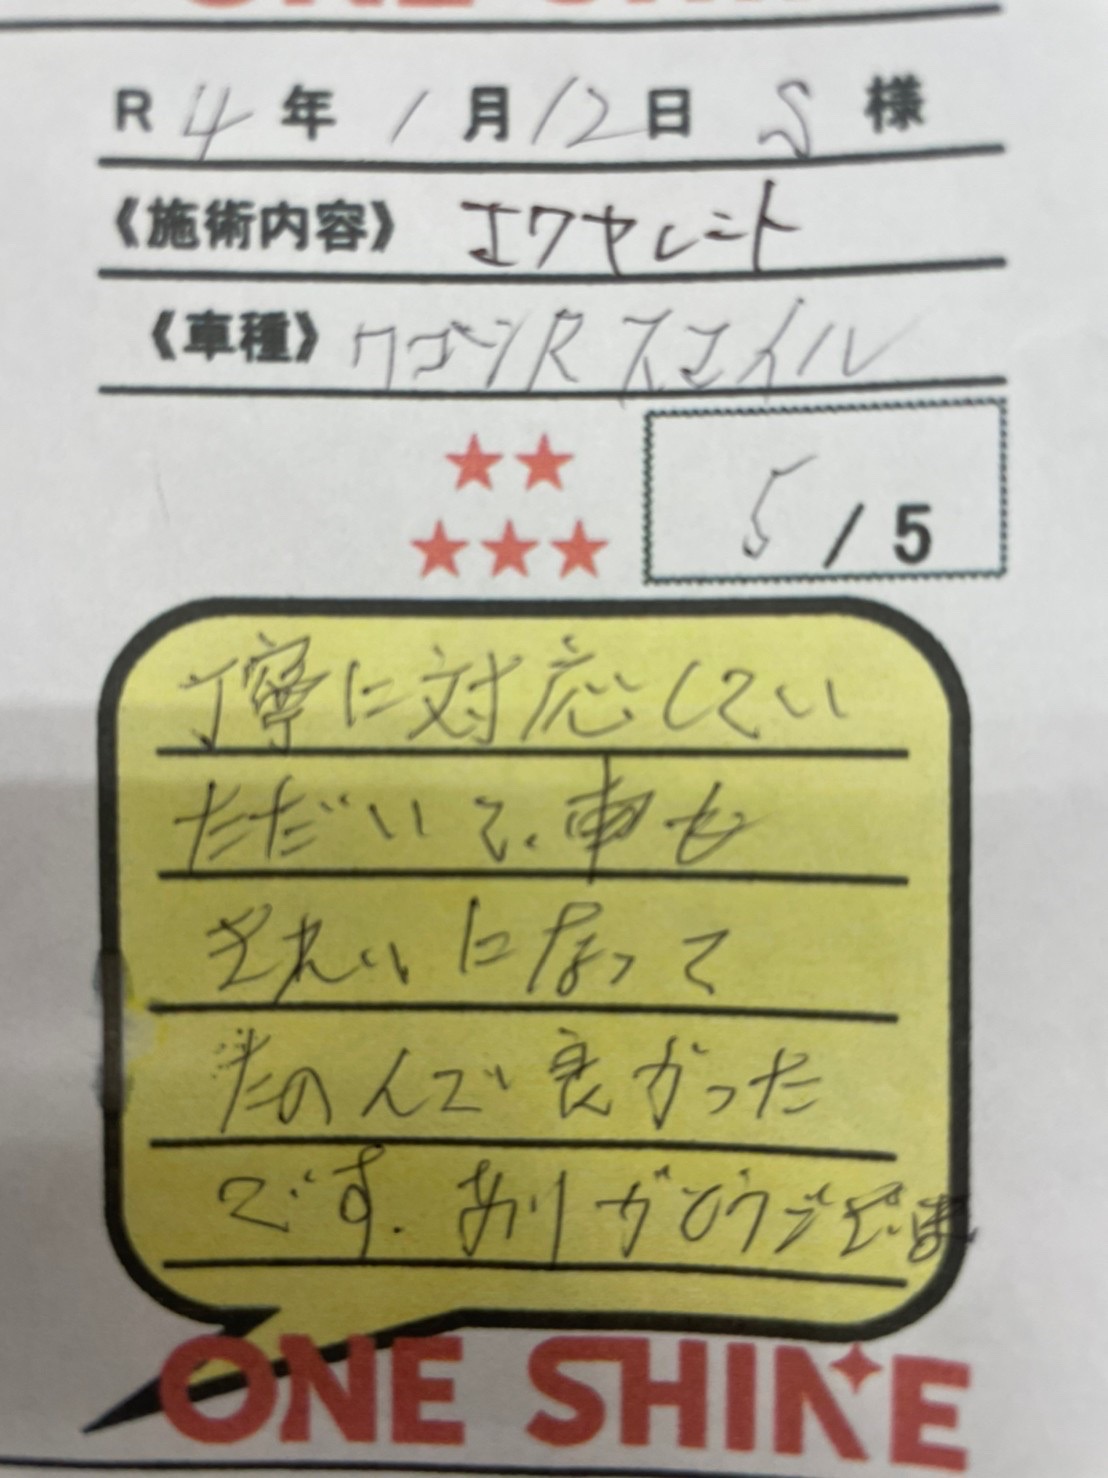 R 4 年 1 月 12 日 S 様
《施術内容》 エクセレント
《車種》 ワゴンR スマイル
★★
★★★
5 / 5
丁寧に対応してい
ただいて、車も
きれいになって
たのんで良かった
です。ありがとうござい
ONE SHINE